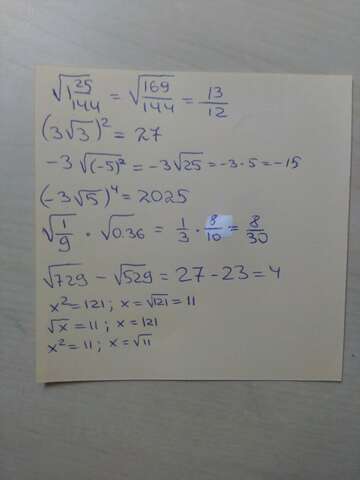 √1 25/144 = √169/144 = 13/12
(3√3)² = 27
-3√(-5)² = -3√25 = -3·5 = -15
(-3√5)⁴ = 2025
√1/9 · √0.36 = 1/3 · 8/10 = 8/30
√729 - √529 = 27 - 23 = 4
x² = 121; x = √121 = 11
√x = 11; x = 121
x² = 11; x = √11